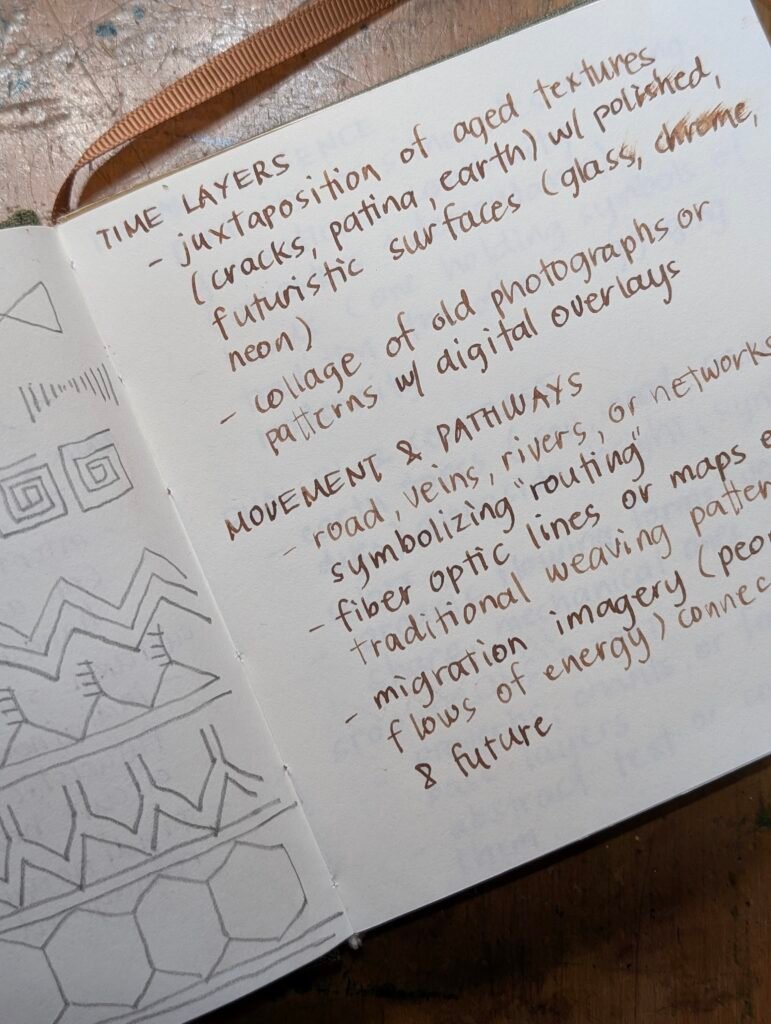 TIME LAYERS
- juxtaposition of aged textures
(cracks, patina, earth) w/ polished,
futuristic surfaces (glass, chrome,
neon)
- collage of old photographs or
patterns w/ digital overlays
MOVEMENT & PATHWAYS
- road, veins, rivers, or networks
symbolizing "routing"
- fiber optic lines or maps
traditional weaving
- migration imagery
flows of energy)
& future